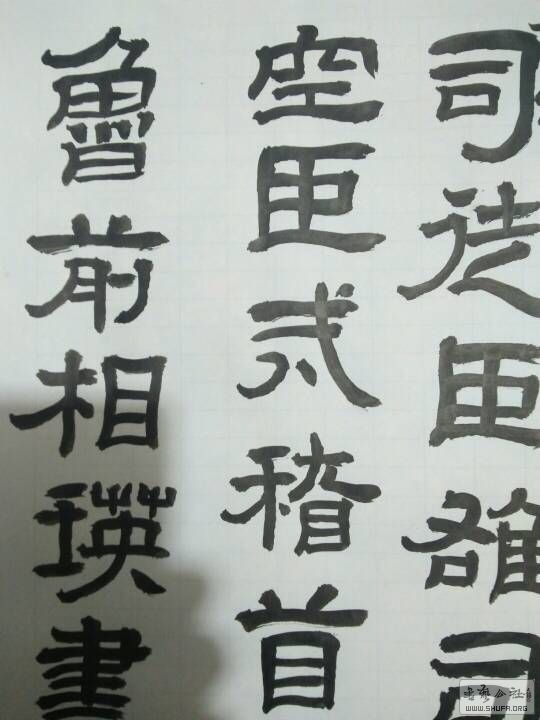 司徒臣雄司
空臣戒稽首
魯前相瑛書
书艺公社
WWW.SHUFA.ORG